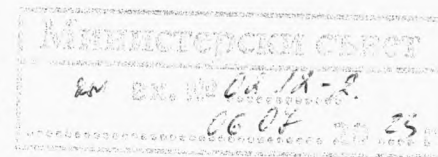 Министерски съвет
вх. № 02.12-2
06 07 20 23